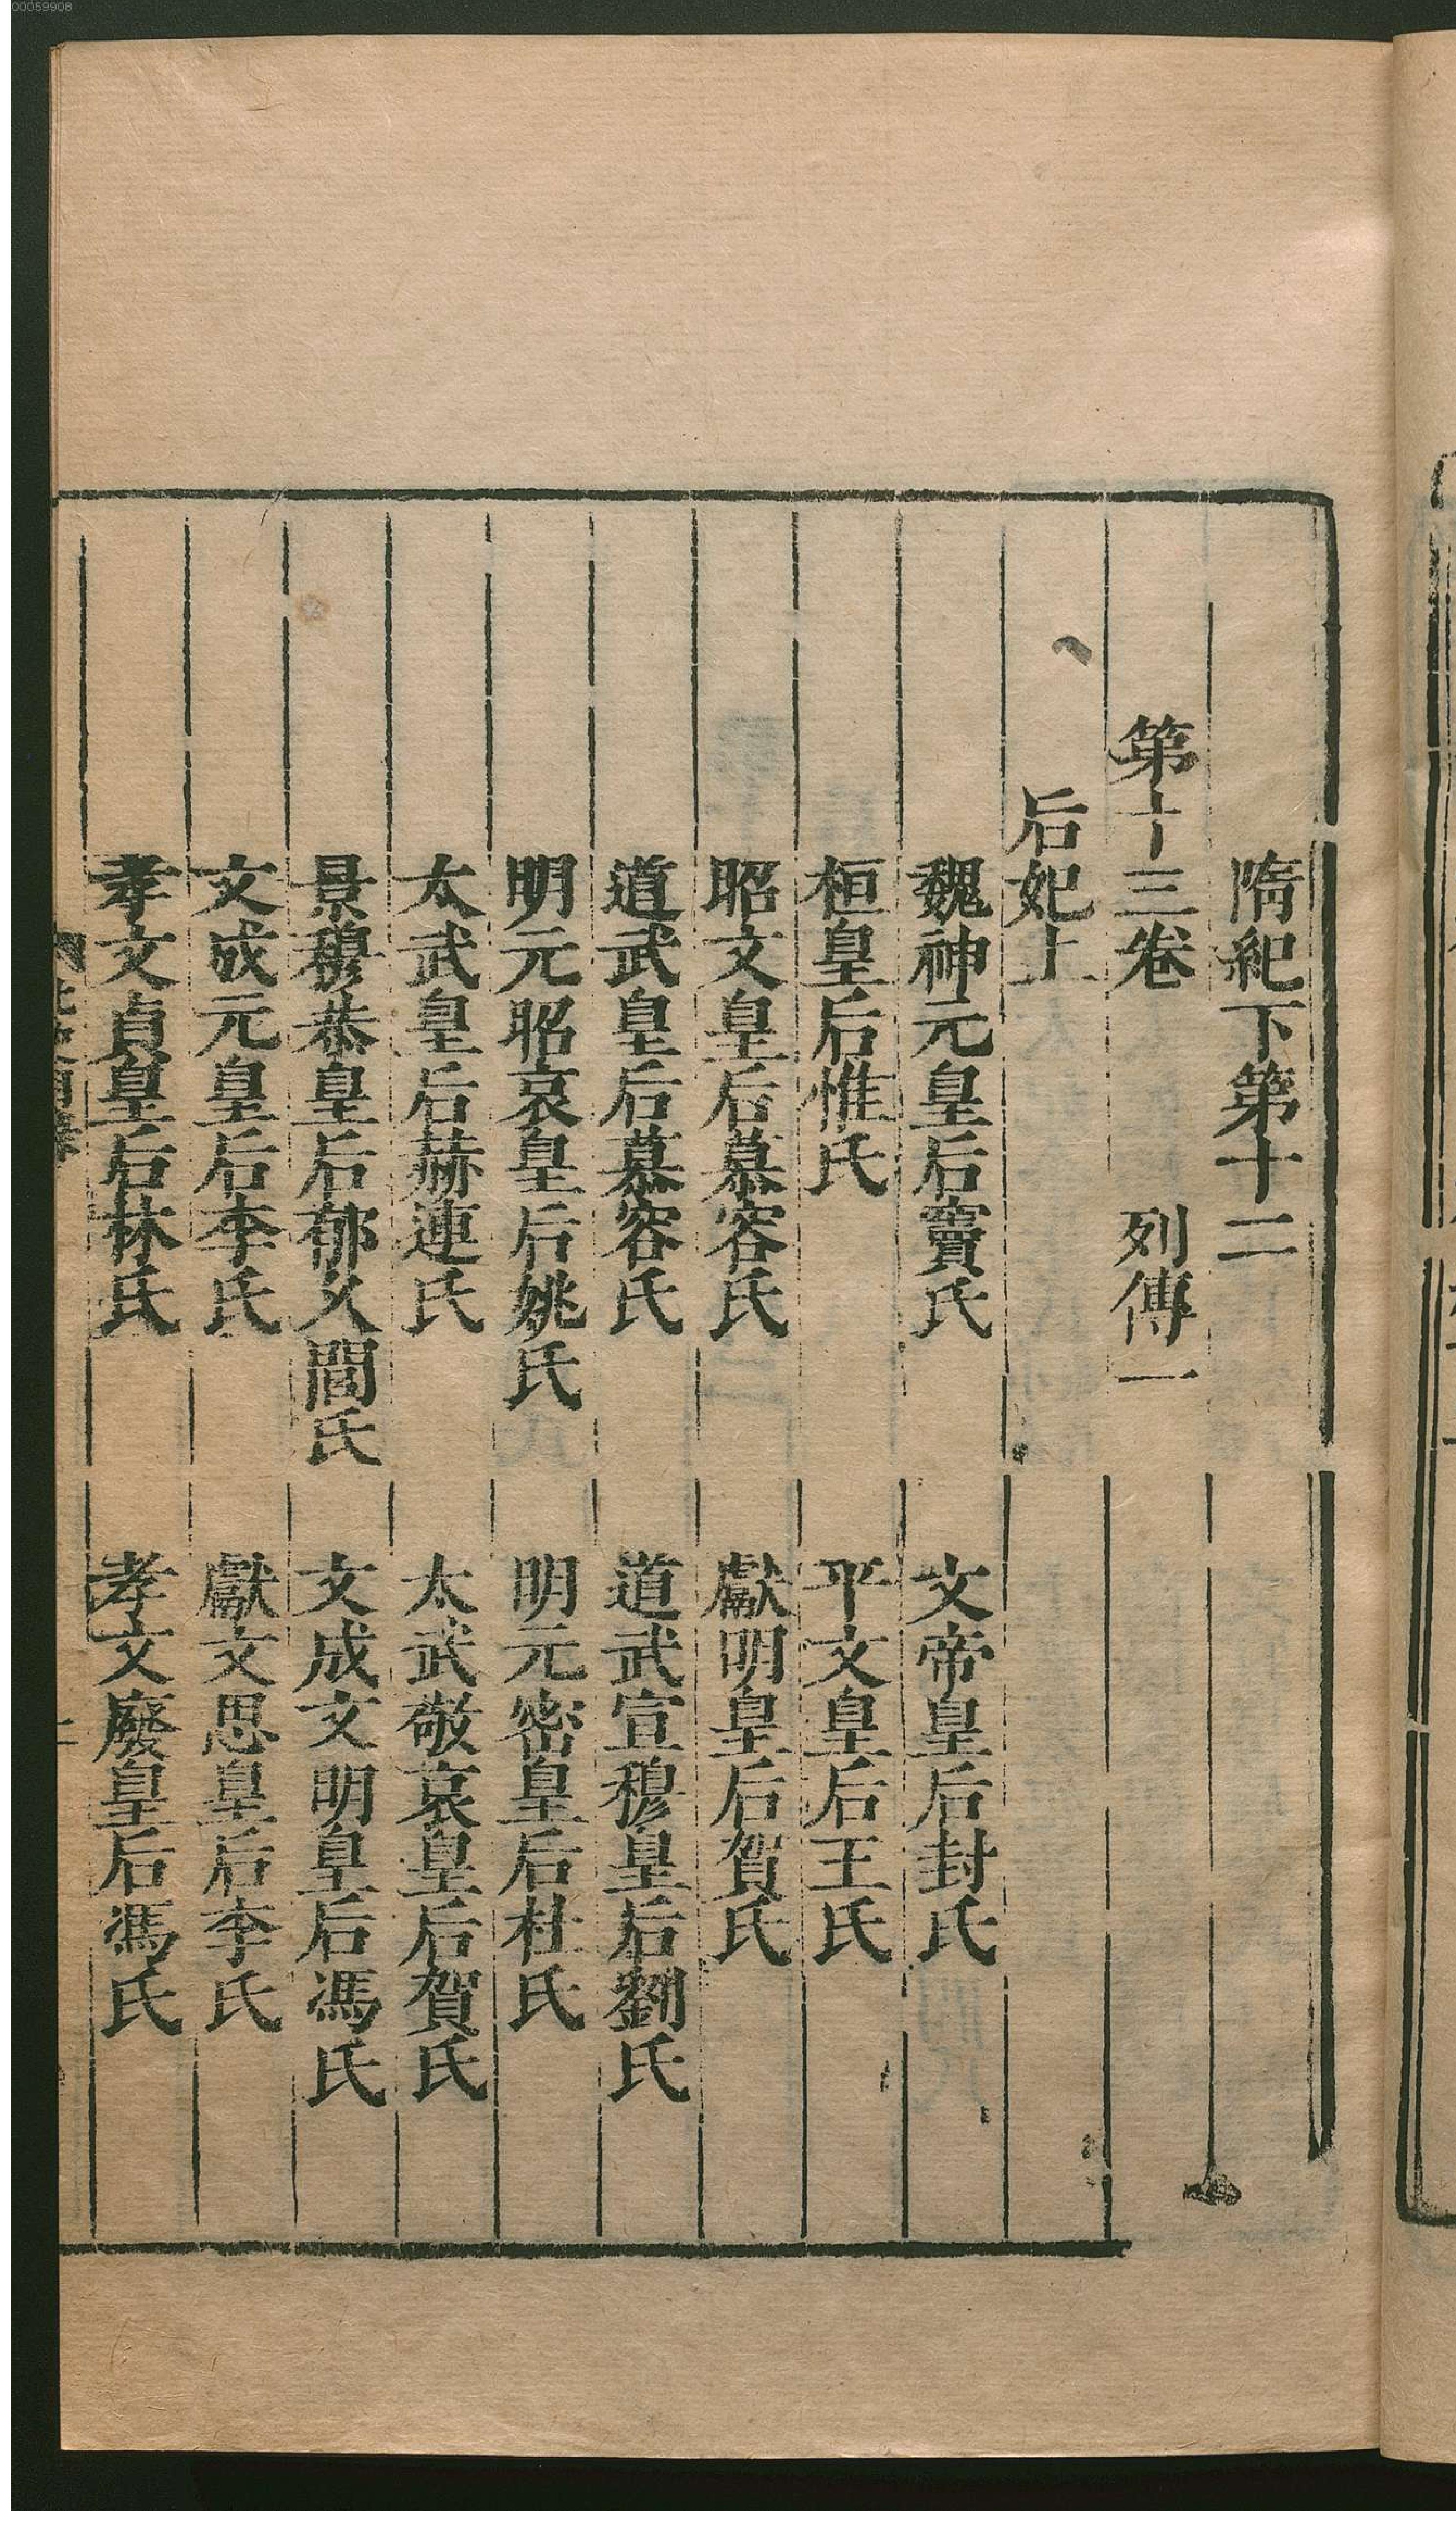 00059908
隋紀下第十二
第十三卷 列傳一
后妃上
魏神元皇后竇氏 文帝皇后封氏
桓皇后惟氏 平文皇后王氏
昭文皇后慕容氏 獻明皇后賀氏
道武皇后慕容氏 道武宣穆皇后劉氏
明元昭哀皇后姚氏 明元密皇后杜氏
太武皇后赫連氏 太武敬哀皇后賀氏
景穆恭皇后郁久閭氏 文成文明皇后馮氏
文成元皇后李氏 獻文思皇后李氏
孝文貞皇后林氏 孝文廢皇后馮氏